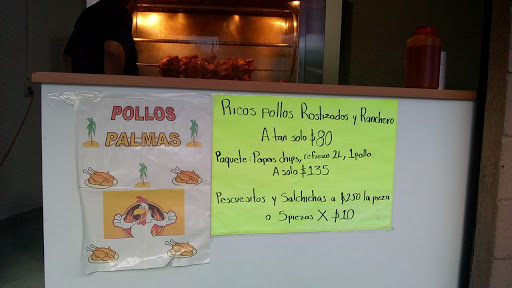 POLLOS
PALMAS
Ricos pollos Rostizados y Ranchero
A tan solo $80
Paquete: Papas chips, refresco 2L, 1 pollo
A solo $135
Pescuesitos y Salchichas a $2.50 la pieza
o 5 piezas X $10